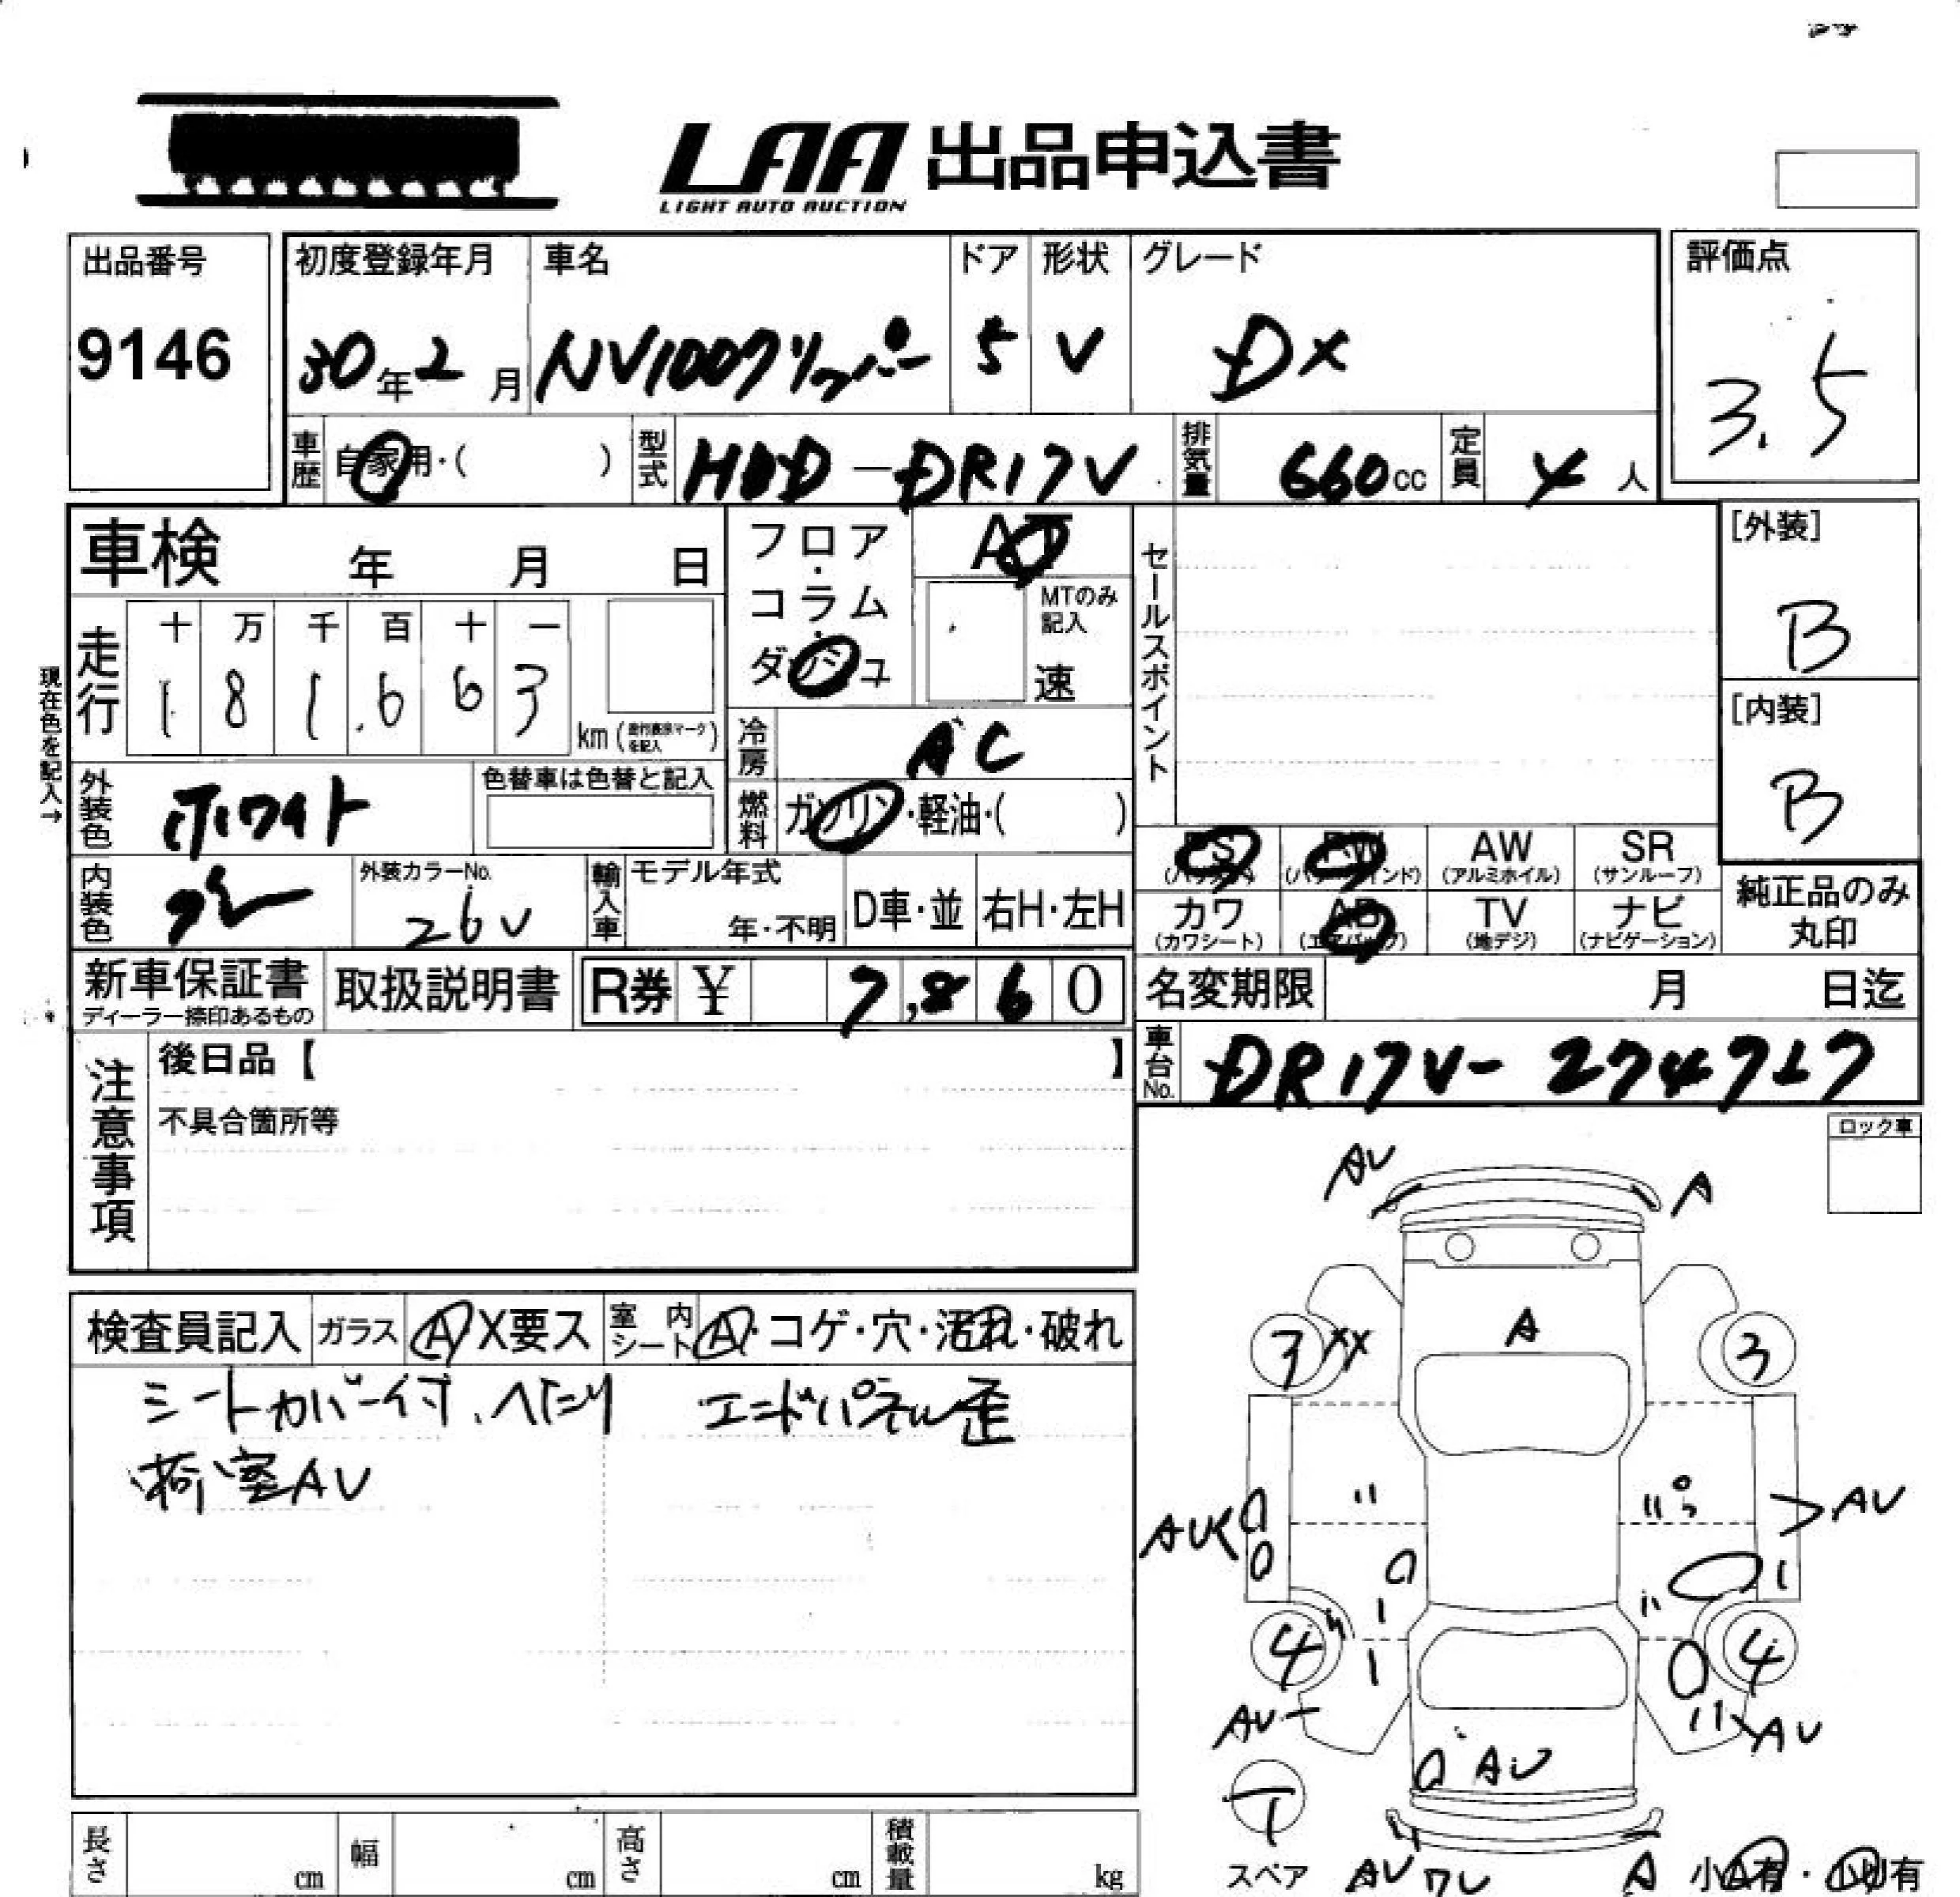 LAA 出品申込書
LIGHT AUTO AUCTION
出品番号
9146
初度登録年月
30年2月
車名
NV100クリッパー
ドア
5
形状
V
グレード
DX
評価点
3.5
車歴 自家用・( )
型式 HBD-DR17V
排気量 660cc
定員 4人
車検 年 月 日
フロア・コラム・ダッシュ
AT
MTのみ記入
速
セールスポイント
[外装]
B
[内装]
B
現在色を記入→
走行
十 万 千 百 十 一
1 8 1,6 6 3
km(走行表示マークを記入)
冷房 AC
外装色 ホワイト
色替車は色替と記入
燃料 ガソリン・軽油・( )
内装色 グレー
外装カラーNo.
26V
輸入車 モデル年式
年・不明
D車・並
右H・左H
PS (パワステ)
PW (パワーウインド)
AW (アルミホイル)
SR (サンルーフ)
カワ (カワシート)
AB (エアバッグ)
TV (地デジ)
ナビ (ナビゲーション)
純正品のみ丸印
新車保証書
ディーラー捺印あるもの
取扱説明書
R券 ¥ 7,860
名変期限 月 日迄
車台No. DR17V-274717
注意事項
後日品【 】
不具合箇所等
ロック車
検査員記入
ガラス A X要ス
室内シート A・コゲ・穴・汚れ・破れ
シートカバー付、ヘたり エンドパネル歪
荷室AU
AU A
3 XX A 3
AU
AU
4 4
AU
AU
AU
T
スペア AU ワレ A 小A有・小U有
長さ cm
幅 cm
高さ cm
積載量 kg